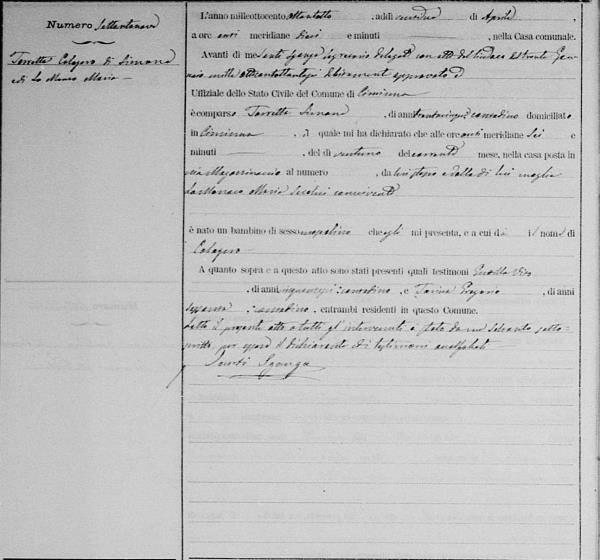 Numero settantanove
Torretta Calogero di Simone
e di Lo Monaco Maria
L'anno milleottocento ottantotto, addì ventidue di Aprile,
a ore anti meridiane dieci e minuti, nella Casa comunale.
Avanti di me Santi Sganga Segretario delegato con atto del Sindaco del trenta Gen-
naio mille ottocentottantasei debitamente approvato
Uffiziale dello Stato Civile del Comune di Ciminna
è comparso Torretta Simone, di anni trentacinque contadino domiciliato
in Ciminna, il quale mi ha dichiarato che alle ore anti meridiane sei e
minuti, del dì ventuno del corrente mese, nella casa posta in
via al numero, da lui stesso e dalla di lui moglie
Lo Monaco Maria secolui convivente
è nato un bambino di sesso mascolino che egli mi presenta, e a cui dà il nome di
Calogero
A quanto sopra e a questo atto sono stati presenti quali testimoni Vito
, di anni contadino, e, di anni
sessanta contadino, entrambi residenti in questo Comune.
Letto il presente atto a tutti gl'intervenuti è stato da me soltanto sotto-
scritto per essere il dichiarante ed i testimoni analfabeti
Santi Sganga